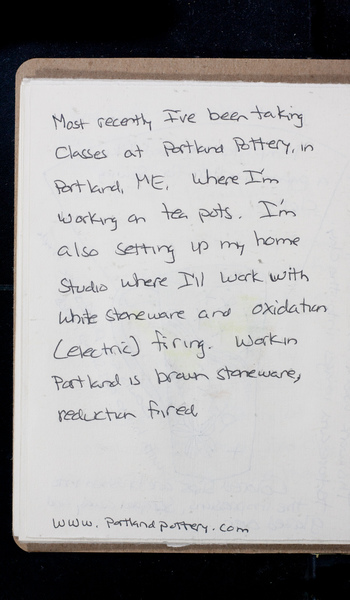 Most recently I've been taking
Classes at Portland Pottery, in
Portland, ME, where I'm
working on tea pots. I'm
also setting up my home
Studio where I'll work with
white stoneware and oxidation
(electric) firing. Work in
Portland is brown stoneware,
reduction fired
www.portlandpottery.com